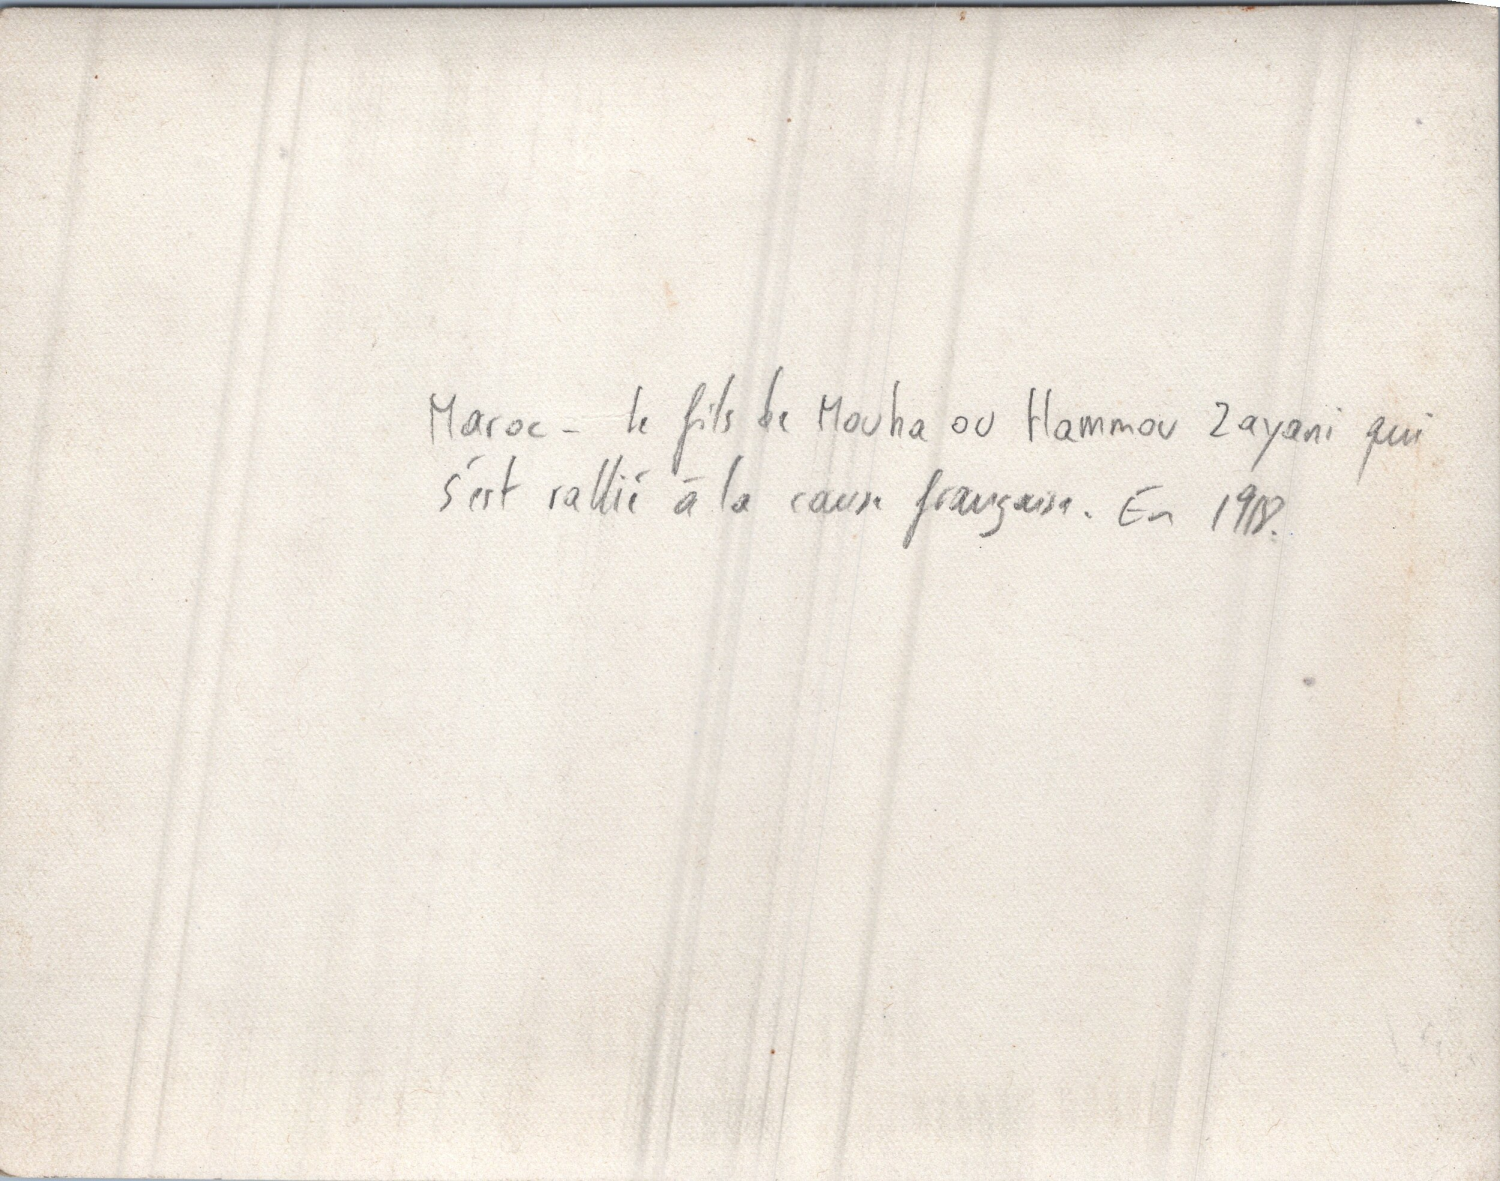 Maroc - le fils de Mouha ou Hammou Zayani qui
s'est rallié à la cause française. En 1918.